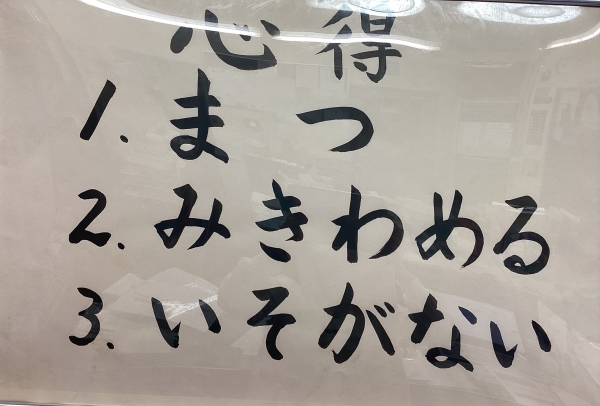 心得
1. まつ
2. みきわめる
3. いそがない